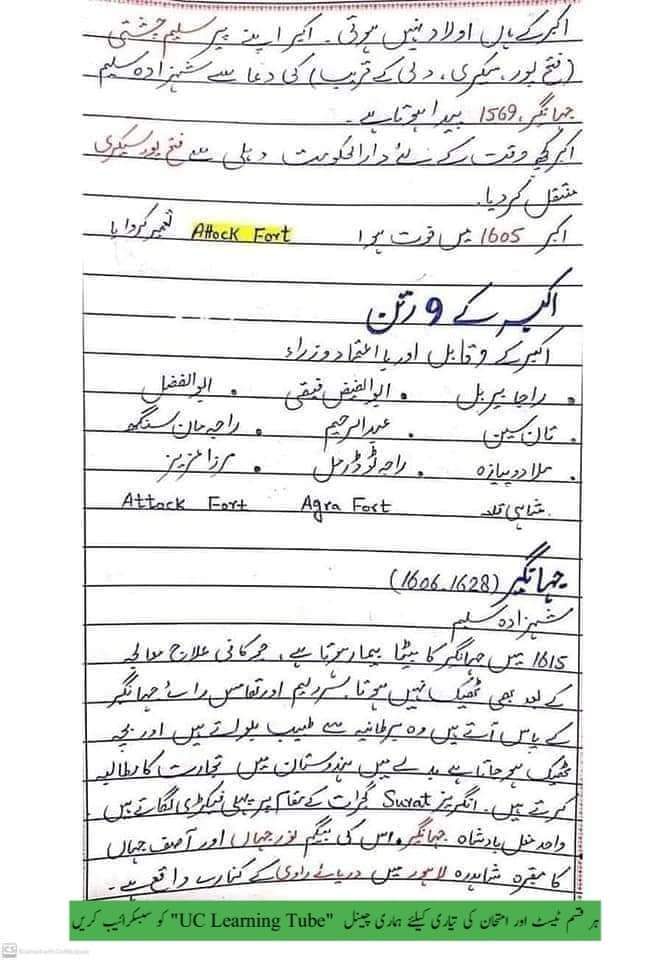 اکبر کے ہاں اولاد نہیں ہوتی۔ اکبر اپنے پیر سلیم چشتی
(فتح پور، سیکری، دلی کے قریب) کی دعا سے شہزادہ سلیم
جہانگیر، 1569 پیدا ہوتا ہے۔
اکبر کچھ وقت کے لئے دارالحکومت دہلی سے فتح پور سیکری
منتقل کر دیا۔
اکبر 1605 میں فوت ہوا Attock Fort تعمیر کروایا
اکبر کے 9 رتن
اکبر کے 9 قابل اور بااعتماد وزراء
• راجا بیربل • ابوالفیض فیضی • ابوالفضل
• تان سین • عبدالرحیم • راجہ مان سنگھ
• ملا دو پیازہ • راجہ ٹوڈرمل • مرزا عزیز
شاہی قلعہ Agra Fort Attock Fort
جہانگیر (1606-1628)
شہزادہ سلیم
1615 میں جہانگیر کا بیٹا بیمار ہوتا ہے، جو کافی علاج معالجہ
کے بعد بھی ٹھیک نہیں ہوتا سر ولیم اور تھامس رائے جہانگیر
کے پاس آتے ہیں وہ برطانیہ سے طبیب بلواتے ہیں اور بچہ
ٹھیک ہو جاتا ہے بدلے میں ہندوستان میں تجارت کا مطالبہ
کرتے ہیں۔ انگریز Surat گجرات کے مقام پر پہلی فیکٹری لگاتے ہیں۔
واحد مغل بادشاہ جہانگیر، اس کی بیگم نور جہاں اور آصف جہاں
کا مقبرہ شاہدرہ لاہور میں دریائے راوی کے کنارے واقع ہے۔
ہر قسم ٹیسٹ اور امتحان کی تیاری کیلئے ہماری چینل "UC Learning Tube" کو سبسکرائیب کریں
CS Scanned with CamScanner